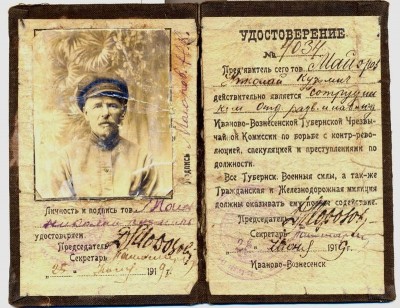 Личность и подпись тов. Майо
удостоверяем
Председатель
Секретарь
1919г.
подпись
УДОСТОВЕРЕНИЕ
№ 4034
Пред'явитель сего тов. Майоров
Николай Кузмич
действительно является сотрудник
Иваново-Вознесенской Губернской Чрезвы-
чайной Комиссии по борьбе с контр-рево-
люцией, спекуляцией и преступлениями по
должности.
Все Губернск. Военный силы, а так-же
Гражданская и Железнодорожная милиция
должны оказывать ему полное содействие.
Председатель
Секретарь
Июня 1919г.
Иваново-Вознесенск